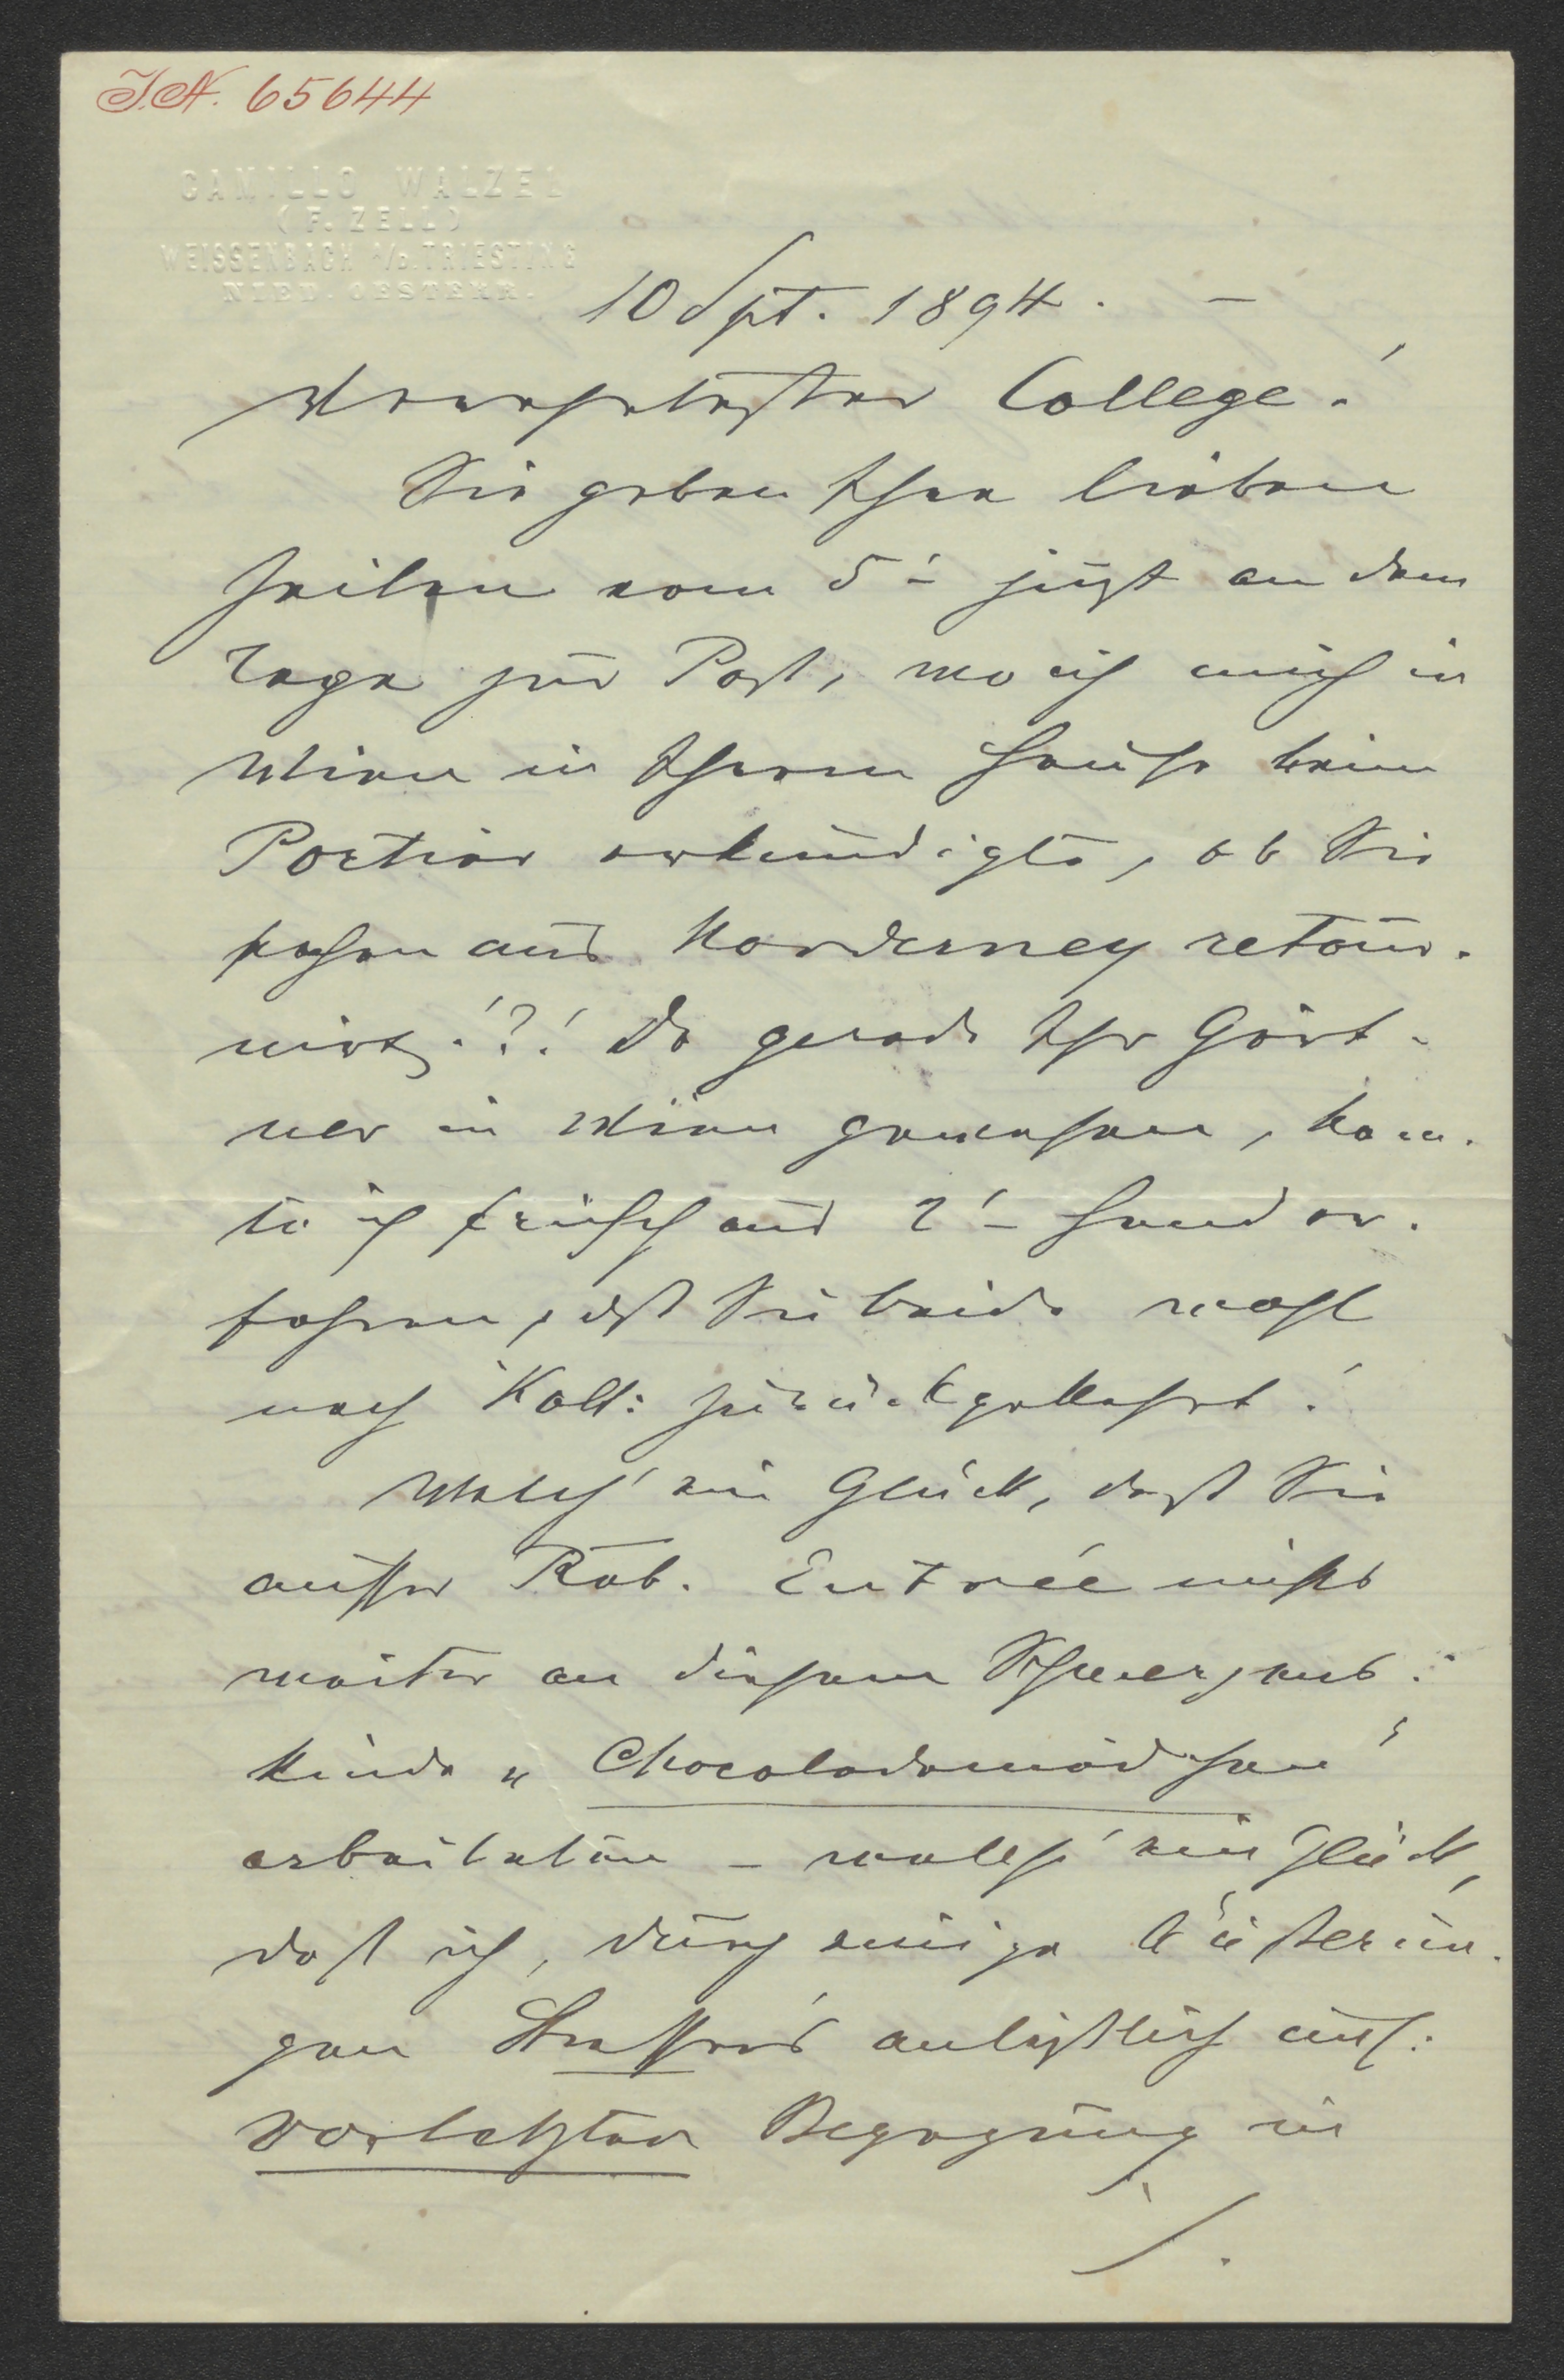 I.N. 65644
CAMILLO WALZEL
(F. ZELL)
WEISSENBACH A/D. TRIESTING
NIED. OESTERR.
10 Spt. 1894. –
Verehrtester College!
Sie geben Ihre lieben
Zeilen vom 5! just an dem
Tage zur Post, wo ich mich in
Wien in Ihrem Hause beim
Portier erkundigte, ob Sie
schon aus Norderney retour-
nirt!?! Da gerade Ihr Gärt-
ner in Wien gewesen, konn-
te ich frisch aus 2! Hand er-
fahren, dß Sie beide wohl
nach Kalt: zurückgekehrt!
Welch' ein Glück, daß Sie
ausser Rab. Entrée nichts
weiter an diesem Schmerzens-
kinde „Chocolademädchen"
arbeiteten – welch' ein Glück,
daß ich, durch einige Äusserun-
gen anläßlich uns:
vorletzten Begegnung in
./.